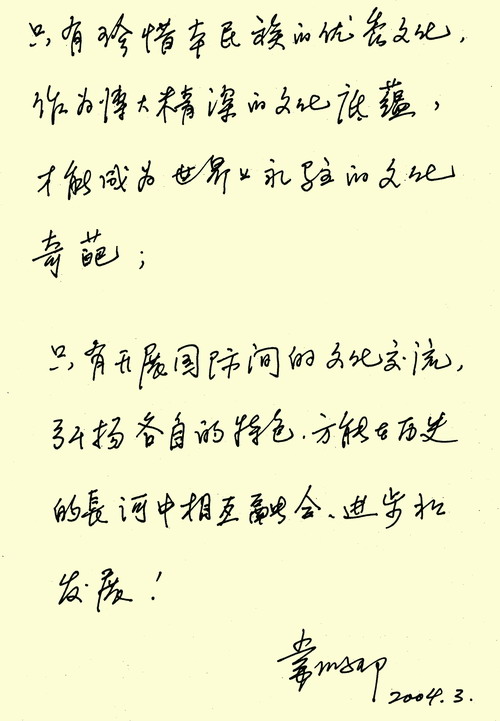 只有珍惜本民族的优秀文化，
作为博大精深的文化底蕴，
才能成为世界上永驻的文化
奇葩；
只有开展国际间的文化交流，
弘扬各自的特色.方能在历史
的長河中相互融会、进步和
发展！
2004.3.